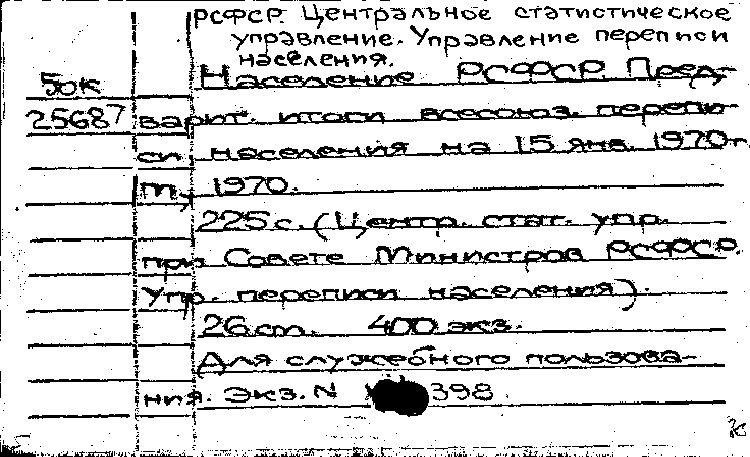 РСФСР. Центральное статистическое
управление. Управление переписи
населения.
50к Население РСФСР. Пред-
25687 варит. итоги всесоюз. перепи-
си населения на 15 янв. 1970г.
М., 1970.
225с. (Центр. стат. упр.
при Совете Министров РСФСР.
Упр. переписи населения).
26см. 400 экз.
Для служебного пользова-
ния. Экз. N 398